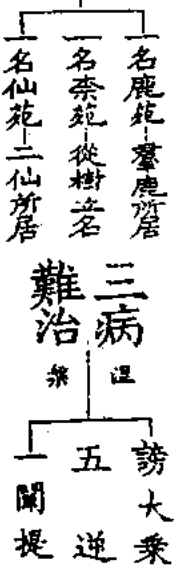 一名鹿苑-羣鹿所居
一名柰苑-從樹立名
一名仙苑-二仙所居
三病
難治
涅槃
謗大乘
五逆
一闡提